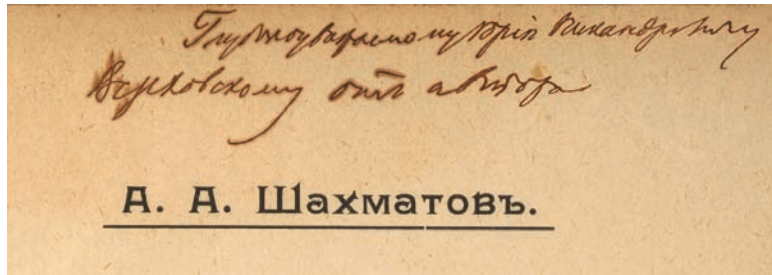 Глубокоуважаемому Юрію Никандровичу
Верховскому отъ автора
А. А. Шахматовъ.